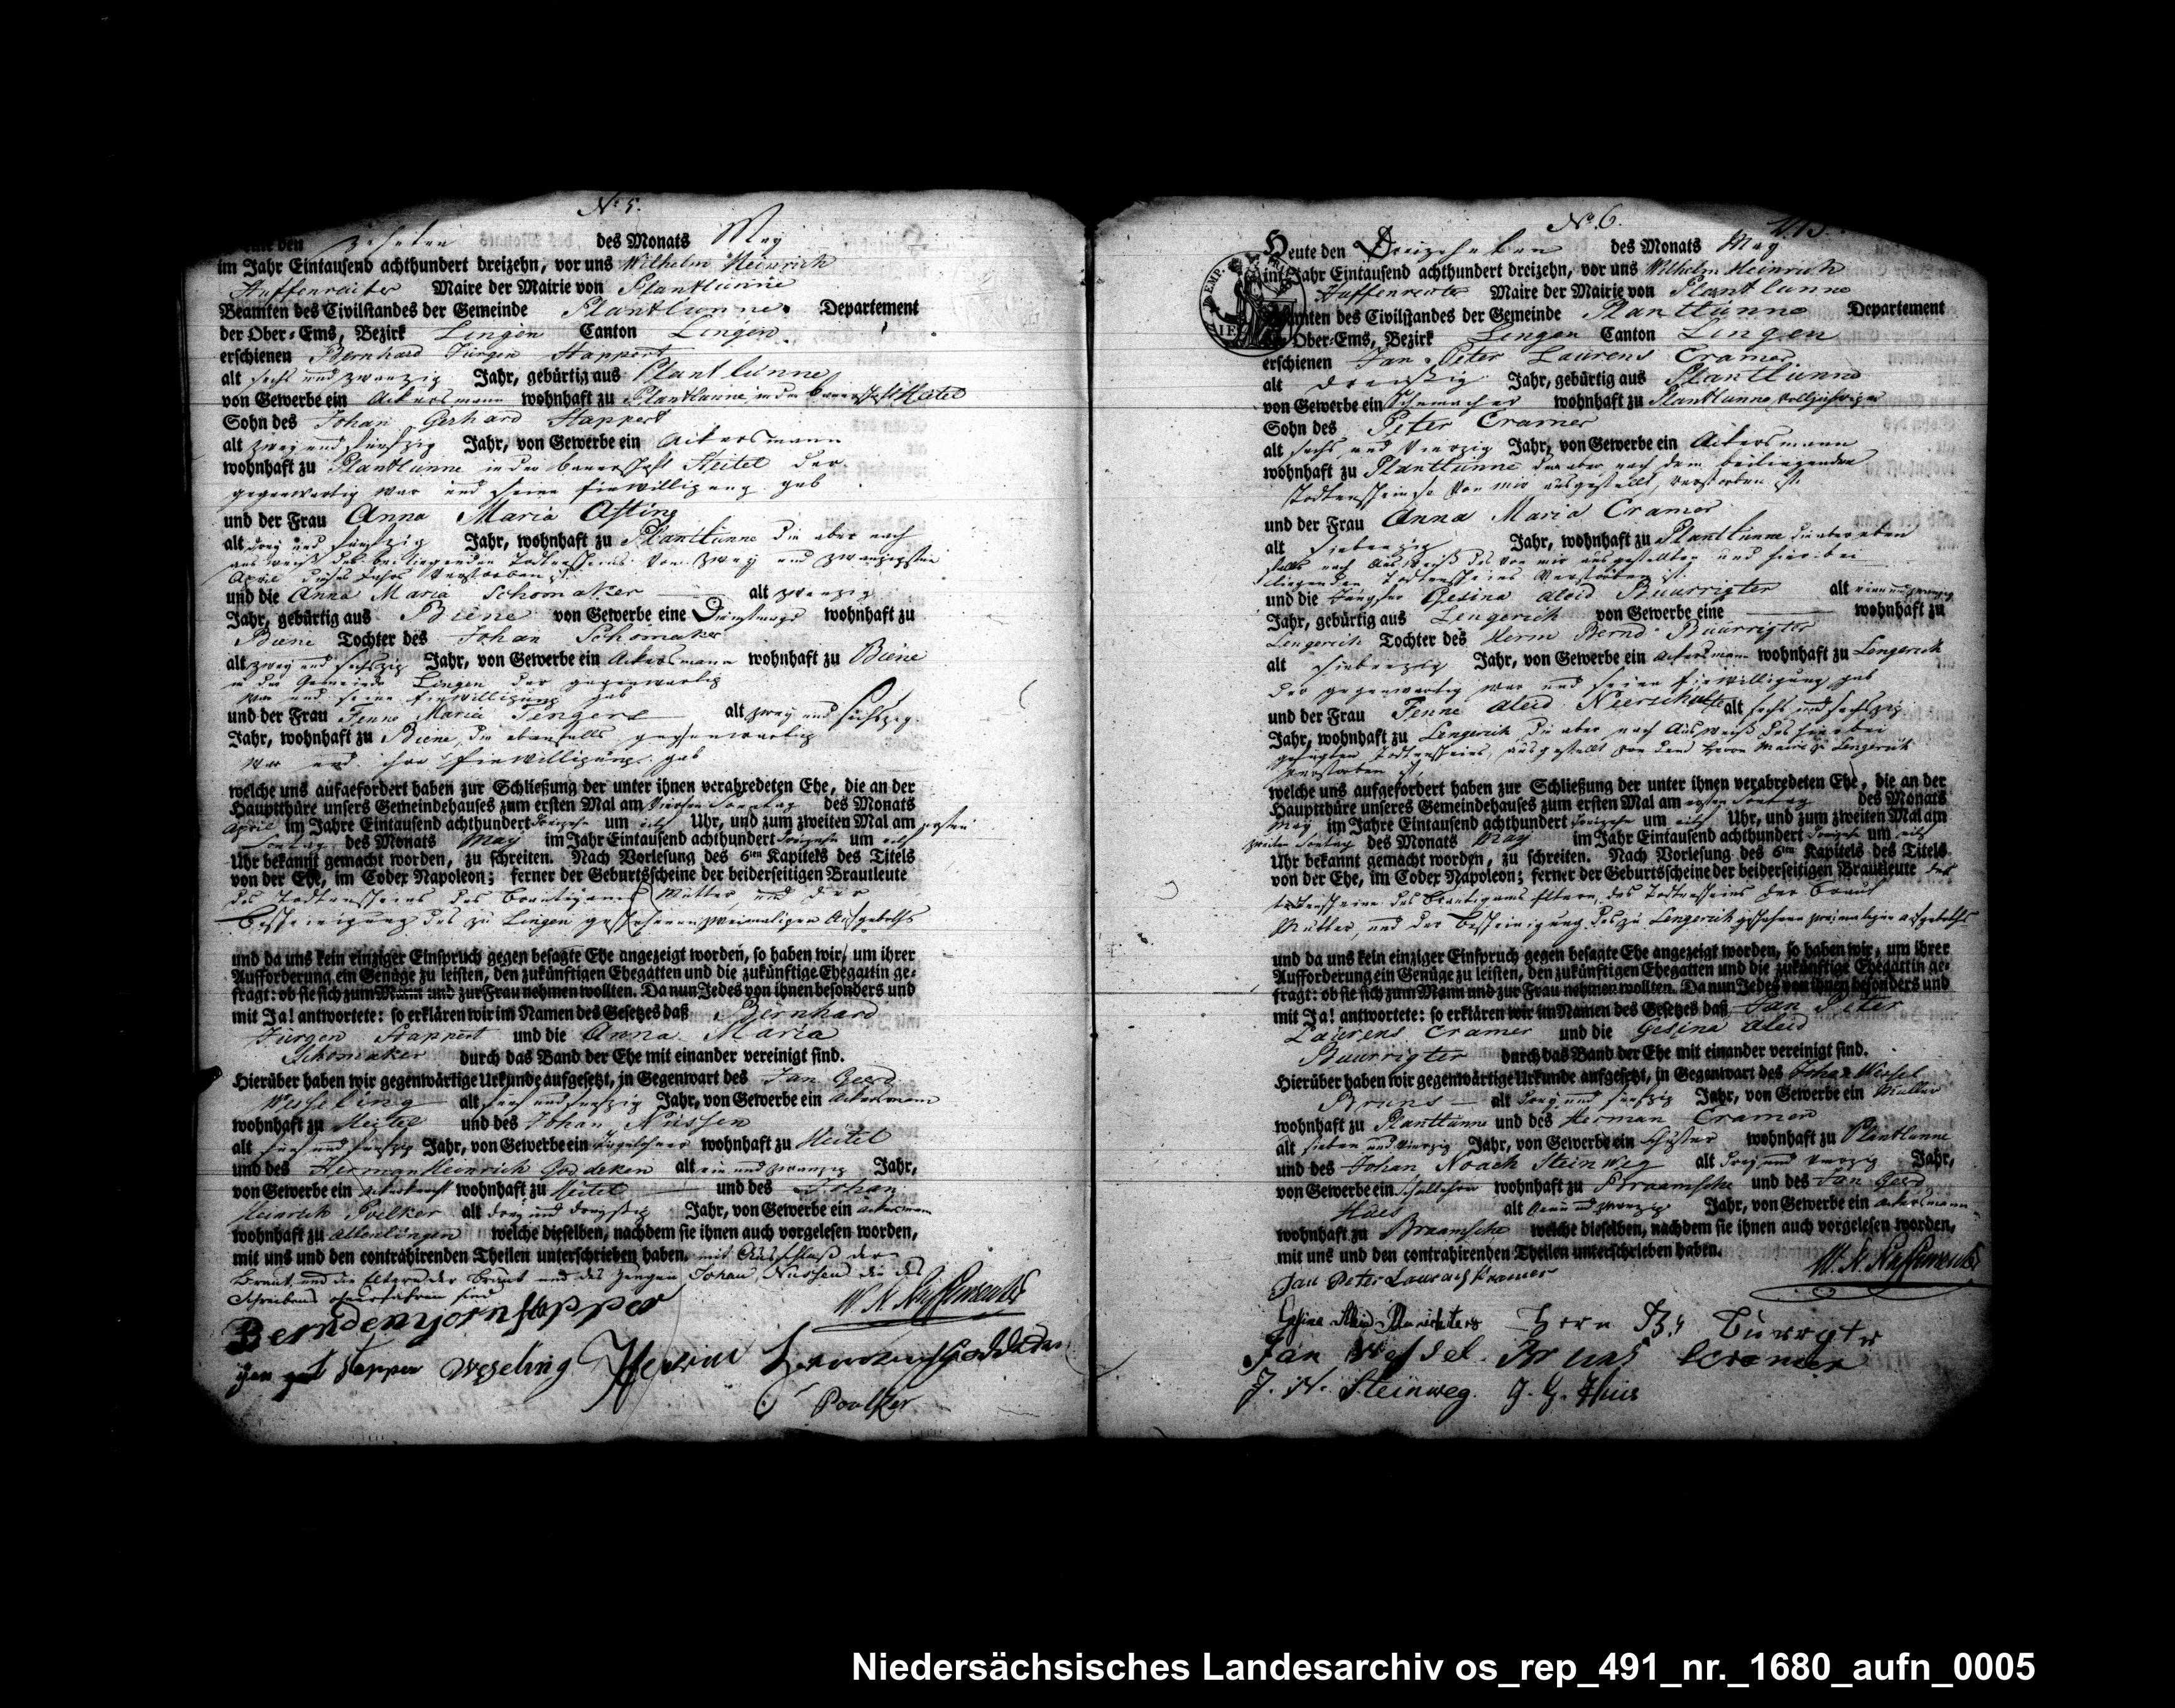 No 5.
Heute den zehnten des Monats May
im Jahr Eintausend achthundert dreizehn, vor uns Wilhelm Heinrich
Maire der Mairie von Plantlünne
Beamten des Civilstandes der Gemeinde Plantlünne Departement
der Ober-Ems, Bezirk Lingen Canton Lingen
erschienen Bernhard Jürgen Stappert
alt sechs und zwanzig Jahr, gebürtig aus Plantlünne
von Gewerbe ein Ackersmann wohnhaft zu Plantlünne in der Bauerschaft Heitel
Sohn des Johan Gerhard Stappert
alt zwey und fünfzig Jahr, von Gewerbe ein Ackersmann
wohnhaft zu Plantlünne in der Bauerschaft Heitel der
gegenwärtig war und seine Einwilligung gab
und der Frau Anna Maria Asting
alt drey und fünfzig Jahr, wohnhaft zu Plantlünne die aber nach
ausweiß des beiliegenden Todtenscheins vom zwey und zwanzigsten
April dieses Jahrs verstorben ist.
und die Anna Maria Schomaker alt zwanzig
Jahr, gebürtig aus Biene von Gewerbe eine Dienstmagd wohnhaft zu
Biene Tochter des Johan Schomaker
alt zwey und sechszig Jahr, von Gewerbe ein Ackersmann wohnhaft zu Biene
in der Gemeinde Lingen der gegenwärtig
war und seine Einwilligung gab
und der Frau Fenne Maria alt zwey und sechszig
Jahr, wohnhaft zu Biene, die ebenfalls gegenwärtig
war und ihre Einwilligung gab
welche uns aufgefordert haben zur Schließung der unter ihnen verabredeten Ehe, die an der
Hauptthüre unsers Gemeindehauses zum ersten Mal am vierten Sonntag des Monats
April im Jahre Eintausend achthundert dreizehn um eilf Uhr, und zum zweiten Mal am ersten
Sontag des Monats May im Jahr Eintausend achthundert dreizehn um eilf
Uhr bekannt gemacht worden, zu schreiten. Nach Vorlesung des 6ten Kapitels des Titels
von der Ehe, im Codex Napoleon; ferner der Geburtsscheine der beiderseitigen Brautleute
des Todtenscheins des Bräutigams Mutter, und der
Bescheinigung des zu Lingen geschehenen zweimaligen Aufgeboths
und da uns kein einziger Einspruch gegen besagte Ehe angezeigt worden, so haben wir, um ihrer
Aufforderung ein Genüge zu leisten, den zukünftigen Ehegatten und die zukünftige Ehegattin ge-
fragt: ob sie sich zum Mann und zur Frau nehmen wollten. Da nun Jedes von ihnen besonders und
mit Ja! antwortete: so erklären wir im Namen des Gesetzes daß Bernhard
Jürgen Stappert und die Anna Maria
Schomaker durch das Band der Ehe mit einander vereinigt sind.
Hierüber haben wir gegenwärtige Urkunde aufgesetzt, in Gegenwart des Jan Geerd
Weseling alt fünf und fünfzig Jahr, von Gewerbe ein Ackersmann
wohnhaft zu Heitel und des Johan Nüssen
alt fünf und fünfzig Jahr, von Gewerbe ein Tagelöhner wohnhaft zu Heitel
und des Herman Heinrich Goddeken alt ein und zwanzig Jahr,
von Gewerbe ein Ackerknecht wohnhaft zu Heitel und des Johan
Heinrich Poelker alt drey und dreyßig Jahr, von Gewerbe ein Ackersmann
wohnhaft zu Altenlingen welche dieselben, nachdem sie ihnen auch vorgelesen worden,
mit uns und den contrahirenden Theilen unterschrieben haben. mit Ausschluß der
Braut und die Eltern der Braut und des Zeugen Johan Nüssen die des
Schreibens ohnerfahren sind
W. H.
Weseling
Poelker
No 6.
Heute den Dreizehnten des Monats May
im Jahr Eintausend achthundert dreizehn, vor uns Wilhelm Heinrich
Maire der Mairie von Plantlünne
Beamten des Civilstandes der Gemeinde Plantlünne Departement
der Ober-Ems, Bezirk Lingen Canton Lingen
erschienen Jan Peter Laurens Cramer
alt dreißig Jahr, gebürtig aus Plantlünne
von Gewerbe ein Schumacher wohnhaft zu Plantlünne, volljähriger
Sohn des Peter Cramer
alt sechs und vierzig Jahr, von Gewerbe ein Ackersmann
wohnhaft zu Plantlünne der aber nach dem beiliegenden
Todtenscheine von mir ausgestellt, verstorben ist.
und der Frau Anna Maria Cramer
alt siebenzig Jahr, wohnhaft zu Plantlünne die aber eben
falls nach Ausweiß des von mir ausgestellten und hierbei
liegenden Todtenscheins verstorben ist.
und die Jungfer Gesina Aleid Buurrigter alt
Jahr, gebürtig aus Lengerich von Gewerbe eine wohnhaft zu
Lengerich Tochter des Herm Bernd Buurrigter
alt siebenzig Jahr, von Gewerbe ein Ackersmann wohnhaft zu Lengerich
der gegenwärtig war und seine Einwilligung gab
und der Frau Fenne Aleid Neerschulte alt sechs und sechszig
Jahr, wohnhaft zu Lengerich, die aber nach Ausweiß des hierbei
gefügten Todtenscheins, ausgestellt von dem Herrn Maire zu Lengerich
verstorben ist,
welche uns aufgefordert haben zur Schließung der unter ihnen verabredeten Ehe, die an der
Hauptthüre unseres Gemeindehauses zum ersten Mal am ersten Sontag des Monats
May im Jahre Eintausend achthundert dreizehn um eilf Uhr, und zum zweiten Mal am
zweiten Sontag des Monats May im Jahr Eintausend achthundert dreizehn um eilf
Uhr bekannt gemacht worden, zu schreiten. Nach Vorlesung des 6ten Kapitels des Titels
von der Ehe, im Codex Napoleon; ferner der Geburtsscheine der beiderseitigen Brautleute der
Todtenscheine des Bräutigams Eltern, des Todtenscheins der Braut
Mutter, und der Bescheinigung des zu Lengerich geschehenen zweimaligen Aufgeboths
und da uns kein einziger Einspruch gegen besagte Ehe angezeigt worden, so haben wir, um ihrer
Aufforderung ein Genüge zu leisten, den zukünftigen Ehegatten und die zukünftige Ehegattin ge-
fragt: ob sie sich zum Mann und zur Frau nehmen wollten. Da nun Jedes von ihnen besonders und
mit Ja! antwortete: so erklären wir im Namen des Gesetzes daß Jan Peter
Laurens Cramer und die Gesina Aleid
Buurrigter durch das Band der Ehe mit einander vereinigt sind.
Hierüber haben wir gegenwärtige Urkunde aufgesetzt, in Gegenwart des Johan Wessel
Bruns alt drey und fünfzig Jahr, von Gewerbe ein Müller
wohnhaft zu Plantlünne und des Herman Cramer
alt sieben und vierzig Jahr, von Gewerbe ein Schuster wohnhaft zu Plantlünne
und des Johan Noach Steinweg alt drey und vierzig Jahr,
von Gewerbe ein wohnhaft zu Bramsche und des Jan Geerd
alt neun und zwanzig Jahr, von Gewerbe ein Ackersmann
wohnhaft zu Bramsche welche dieselben, nachdem sie ihnen auch vorgelesen worden,
mit uns und den contrahirenden Theilen unterschrieben haben.
W. H.
Jan Peter Laurens Kramer
Jan Wessel Bruns Cramer
J. N. Steinweg.
Niedersächsisches Landesarchiv os_rep_491_nr._1680_aufn_0005